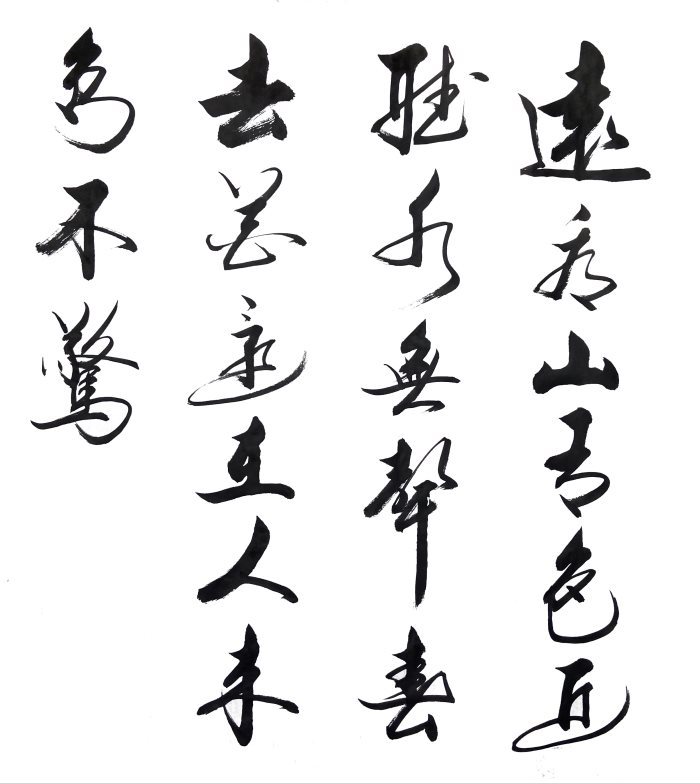 遠看山有色近
聽水無聲春
去花還在人來
鳥不驚